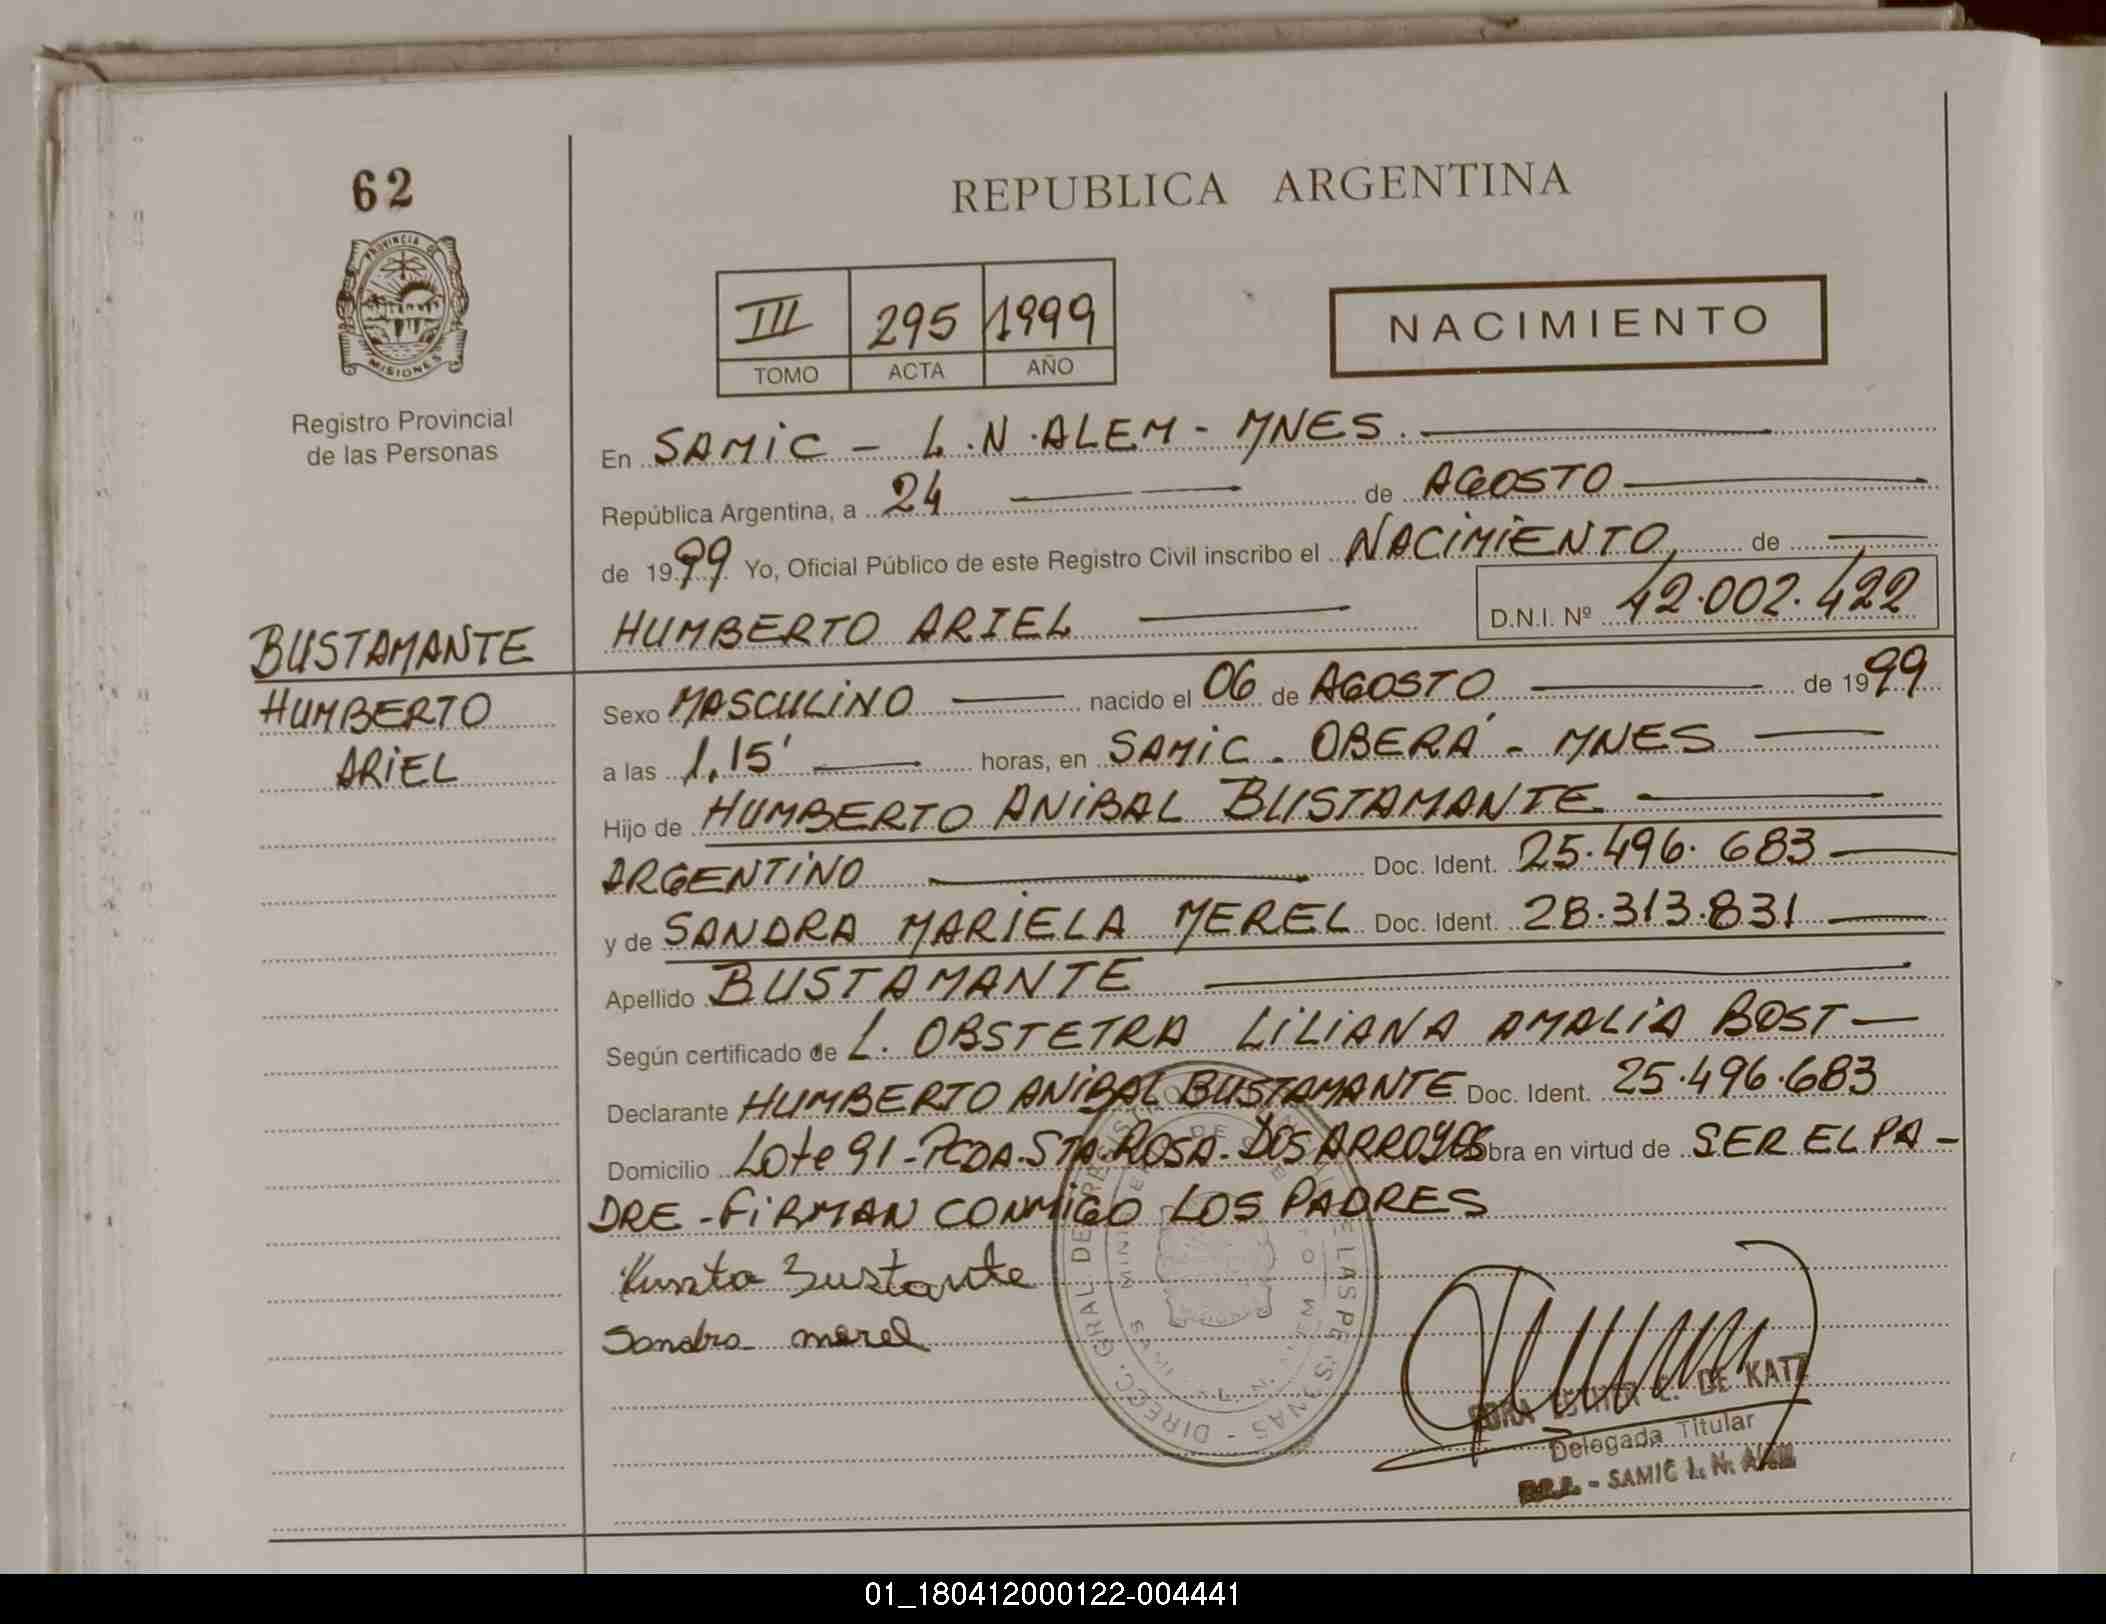 62
PROVINCIA DE
MISIONES
Registro Provincial
de las Personas
BUSTAMANTE
HUMBERTO
ARIEL
REPUBLICA ARGENTINA
III 295 1999
TOMO ACTA AÑO
NACIMIENTO
En SAMIC - L.N.ALEM - MNES.
República Argentina, a 24 de AGOSTO
de 1999 Yo, Oficial Público de este Registro Civil inscribo el NACIMIENTO, de
HUMBERTO ARIEL D.N.I. Nº 42.002.422
Sexo MASCULINO nacido el 06 de AGOSTO de 1999
a las 1,15' horas, en SAMIC - OBERÁ - MNES
Hijo de HUMBERTO ANIBAL BUSTAMANTE
ARGENTINO Doc. Ident. 25.496.683
y de SANDRA MARIELA MEREL Doc. Ident. 28.313.831
Apellido BUSTAMANTE
Según certificado de L. OBSTETRA LILIANA AMALIA BOST
Declarante HUMBERTO ANIBAL BUSTAMANTE Doc. Ident. 25.496.683
Domicilio Lote 91 - PCDA. STA. ROSA - DOS ARROYOS obra en virtud de SER EL PA-
DRE - FIRMAN CONMIGO LOS PADRES
Sandra merel
DE KATZ
Delegada Titular
- SAMIC L. N. ALEM
01_180412000122-004441